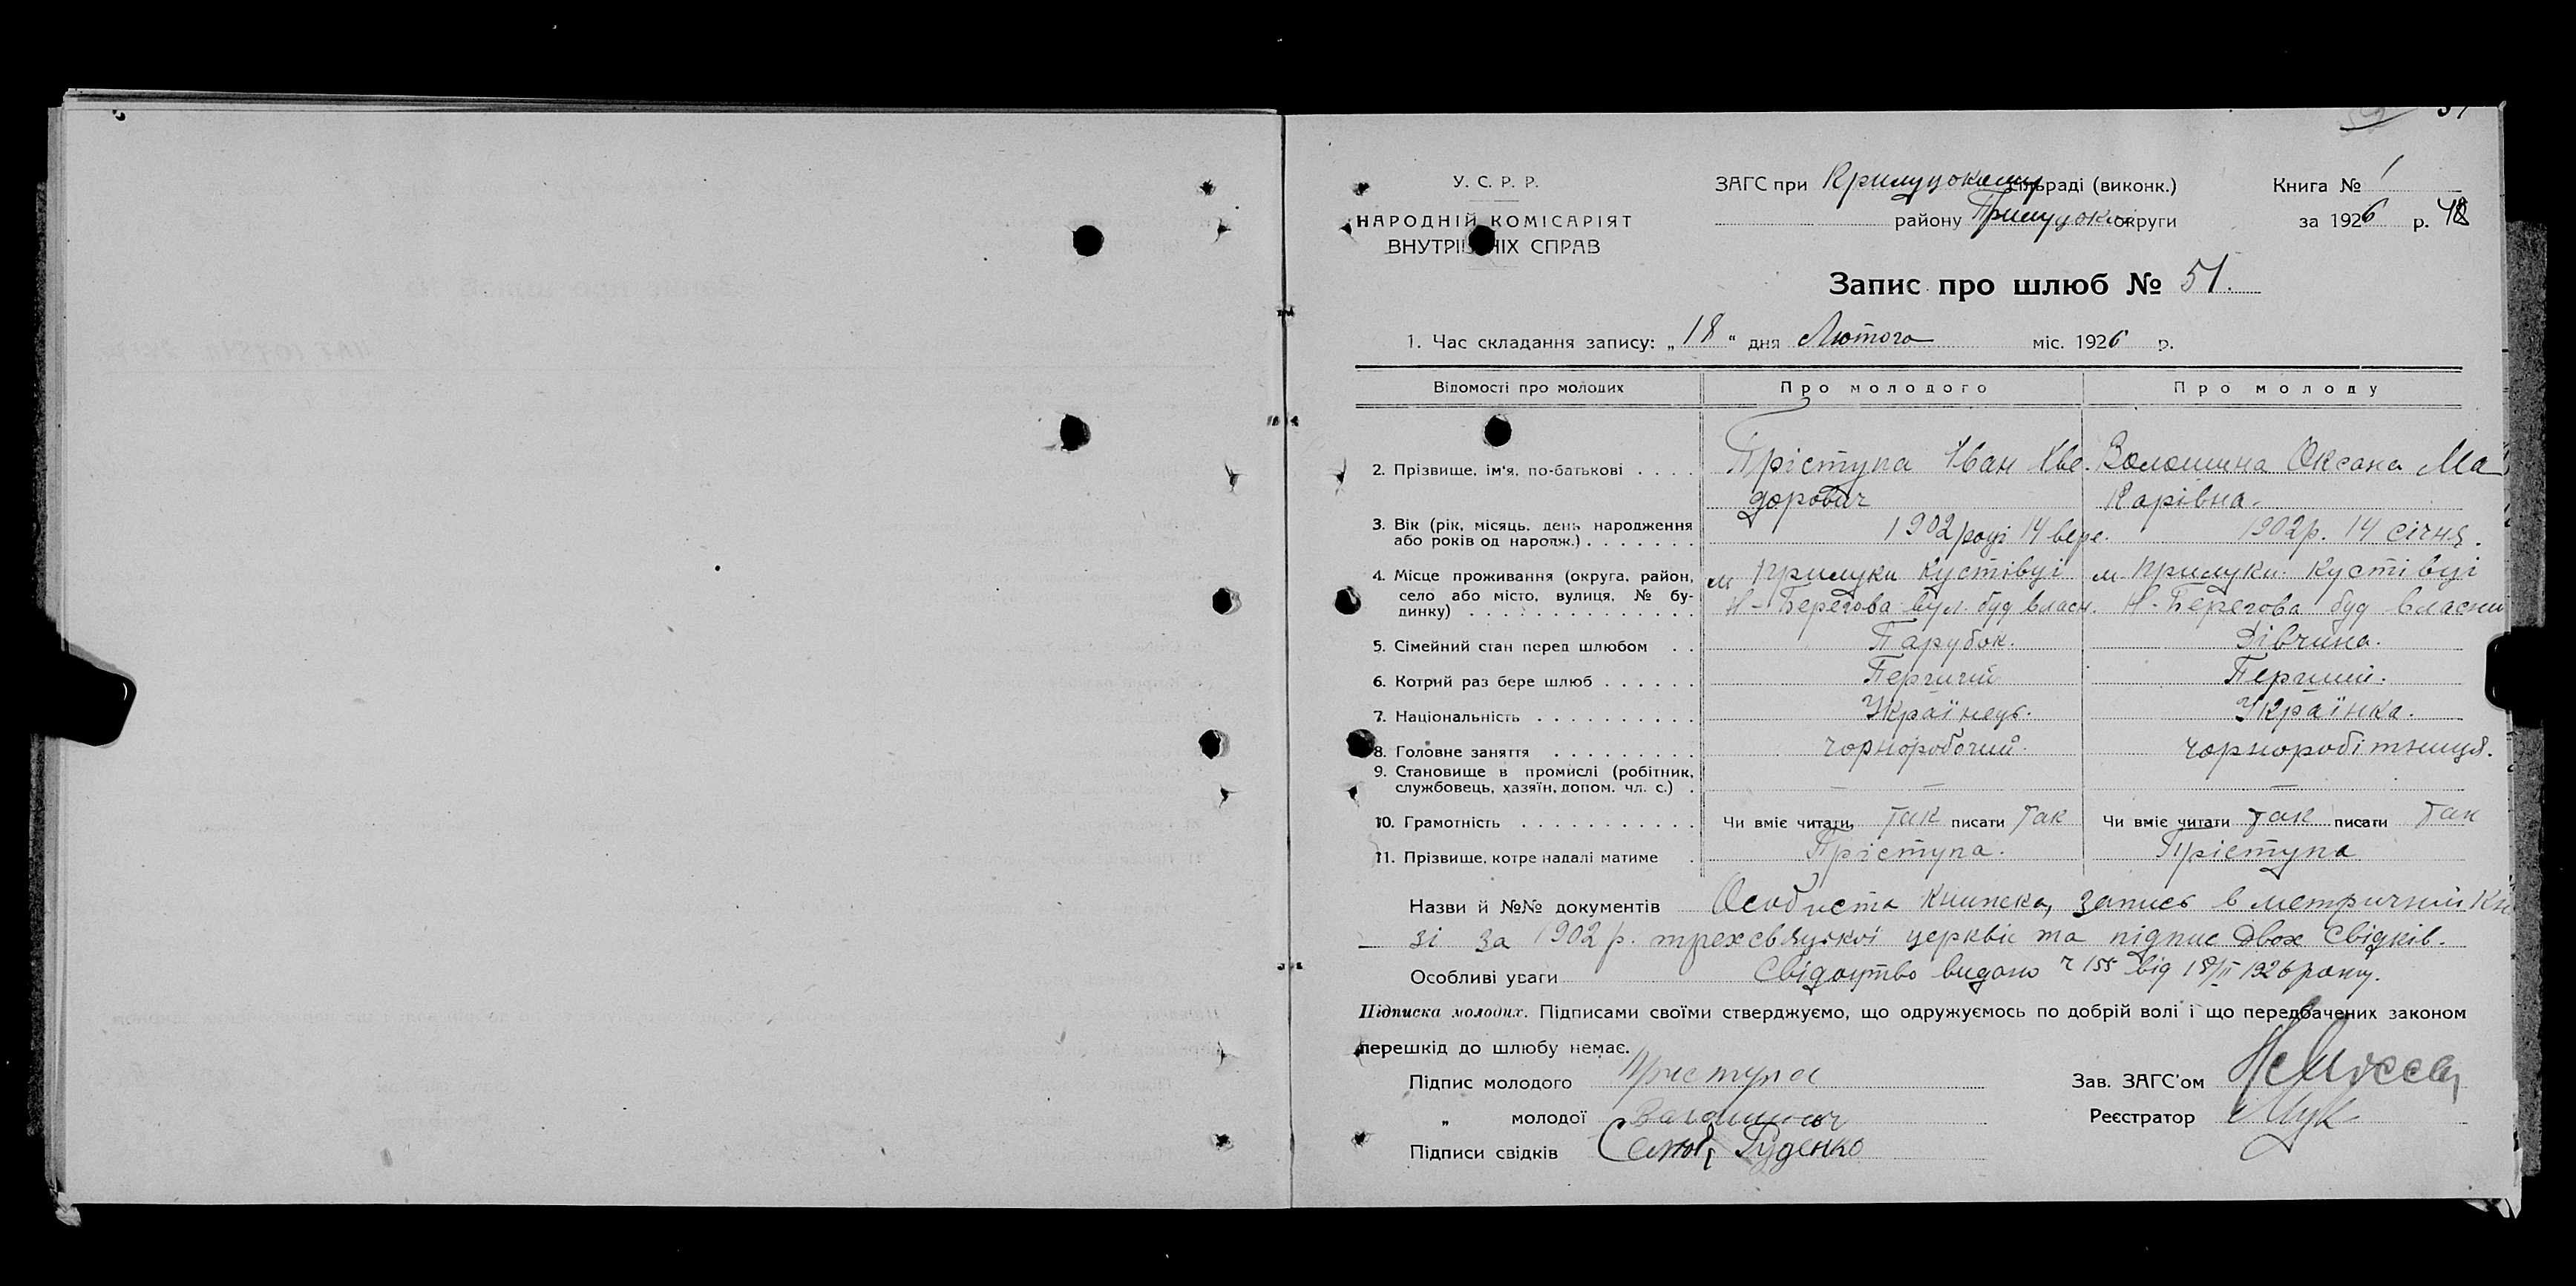 51
У. С. Р. Р.
НАРОДНІЙ КОМІСАРІЯТ
ВНУТРІШНІХ СПРАВ
ЗАГС при Прилуцокому райраді (виконк.)
району Прилуцокої округи
Книга № 1
за 1926 р. 48
Запис про шлюб № 51.
1. Час складання запису: „18“ дня Лютого міс. 1926 р.
Відомості про молодих Про молодого Про молоду
2. Прізвище, ім'я, по-батькові . . . . Пріступа Іван Хве- Волошина Оксана Ма
дорович карівна.
3. Вік (рік, місяць, день народження
або років од народж.) . . . . . . . 1902 році 14 вере. 1902 р. 14 січня.
4. Місце проживання (округа, район, м Прилуки Кустівці м Прилуки Кустівці
село або місто, вулиця, № бу- Н-Берегова вул. буд власн. Н-Берегова буд власни
динку) . . . . . . . . . . . . . .
5. Сімейний стан перед шлюбом . . Парубок. Дівчина.
6. Котрий раз бере шлюб . . . . . . Перший Перший.
7. Національність . . . . . . . . . . Українець. Українка.
8. Головне заняття . . . . . . . . . чорноробочий. чорноробітниця.
9. Становище в промислі (робітник,
службовець, хазяїн, допом. чл. с.) . — —
10. Грамотність . . . . . . . . . . . Чи вміє читати, так писати так Чи вміє читати так писати так
11. Прізвище, котре надалі матиме . Пріступа. Пріступа
Назви й №№ документів Особиста книжка, запись в метричний Кни
— зі за 1902 р. трехсвяцкої церквіи та підпис двох свідків.
Особливі уваги Свідоцтво видано ч 155 від 18/II 1926 року.
Підписка молодих. Підписами своїми стверджуємо, що одружуємось по добрій волі і що передбачених законом
перешкід до шлюбу немає.
Підпис молодого Приступа Зав. ЗАГС'ом
„ молодої Волошина Реєстратор
Підписи свідків Руденко